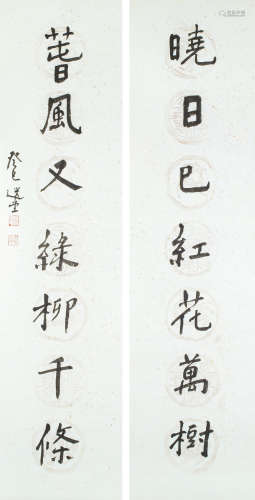 曉日已紅花萬樹
蒈風又綠柳千條
癸巳選堂